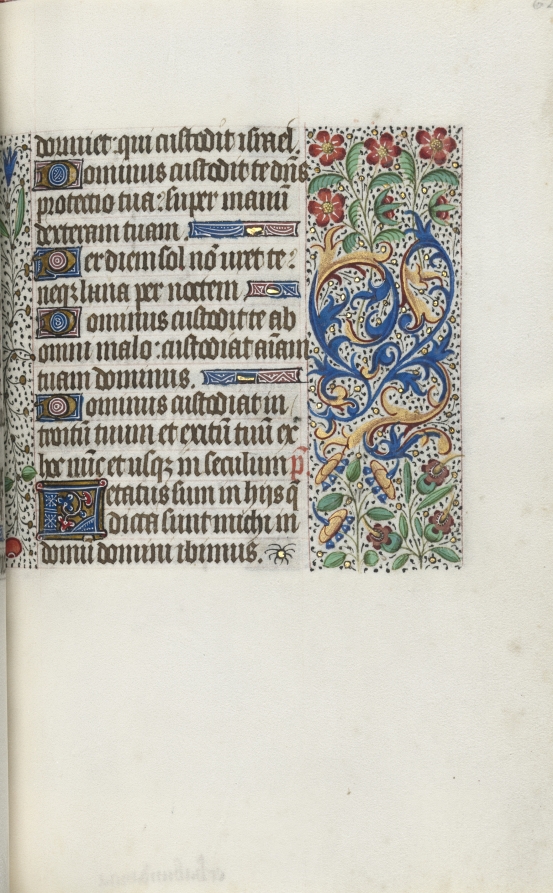 dormiet: qui custodit israel
Dominus custodit te dñs
protectio tua: super manū
dexteram tuam
Per diem sol nō uret te:
neqz luna per noctem
Dominus custodit te ab
omni malo: custodiat aīam
tuam dominus.
Dominus custodiat in
troitū tuum et exitū tuū ex
hoc nūc et usqz in seculum p̄
Letatus sum in hijs q̄
dicta sunt michi in
domū domini ibimus.